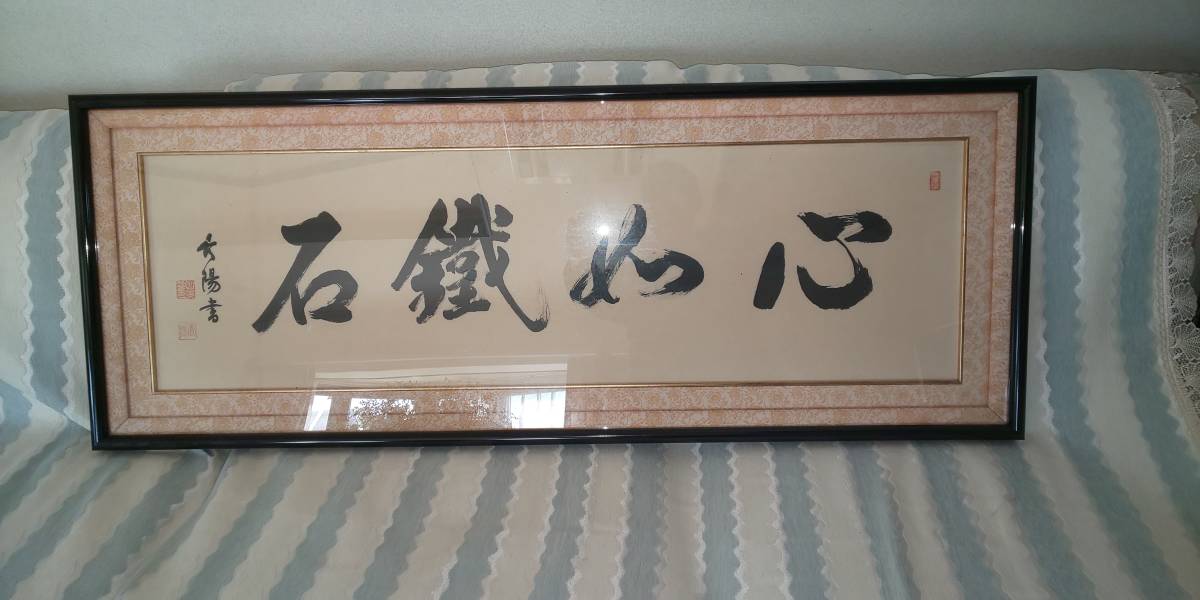 心如鐵石
陽書